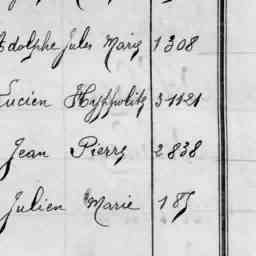 Adolphe Jules Marie 1308
Lucien Hyppolite 31121
Jean Pierre 2838
Julien Marie 187